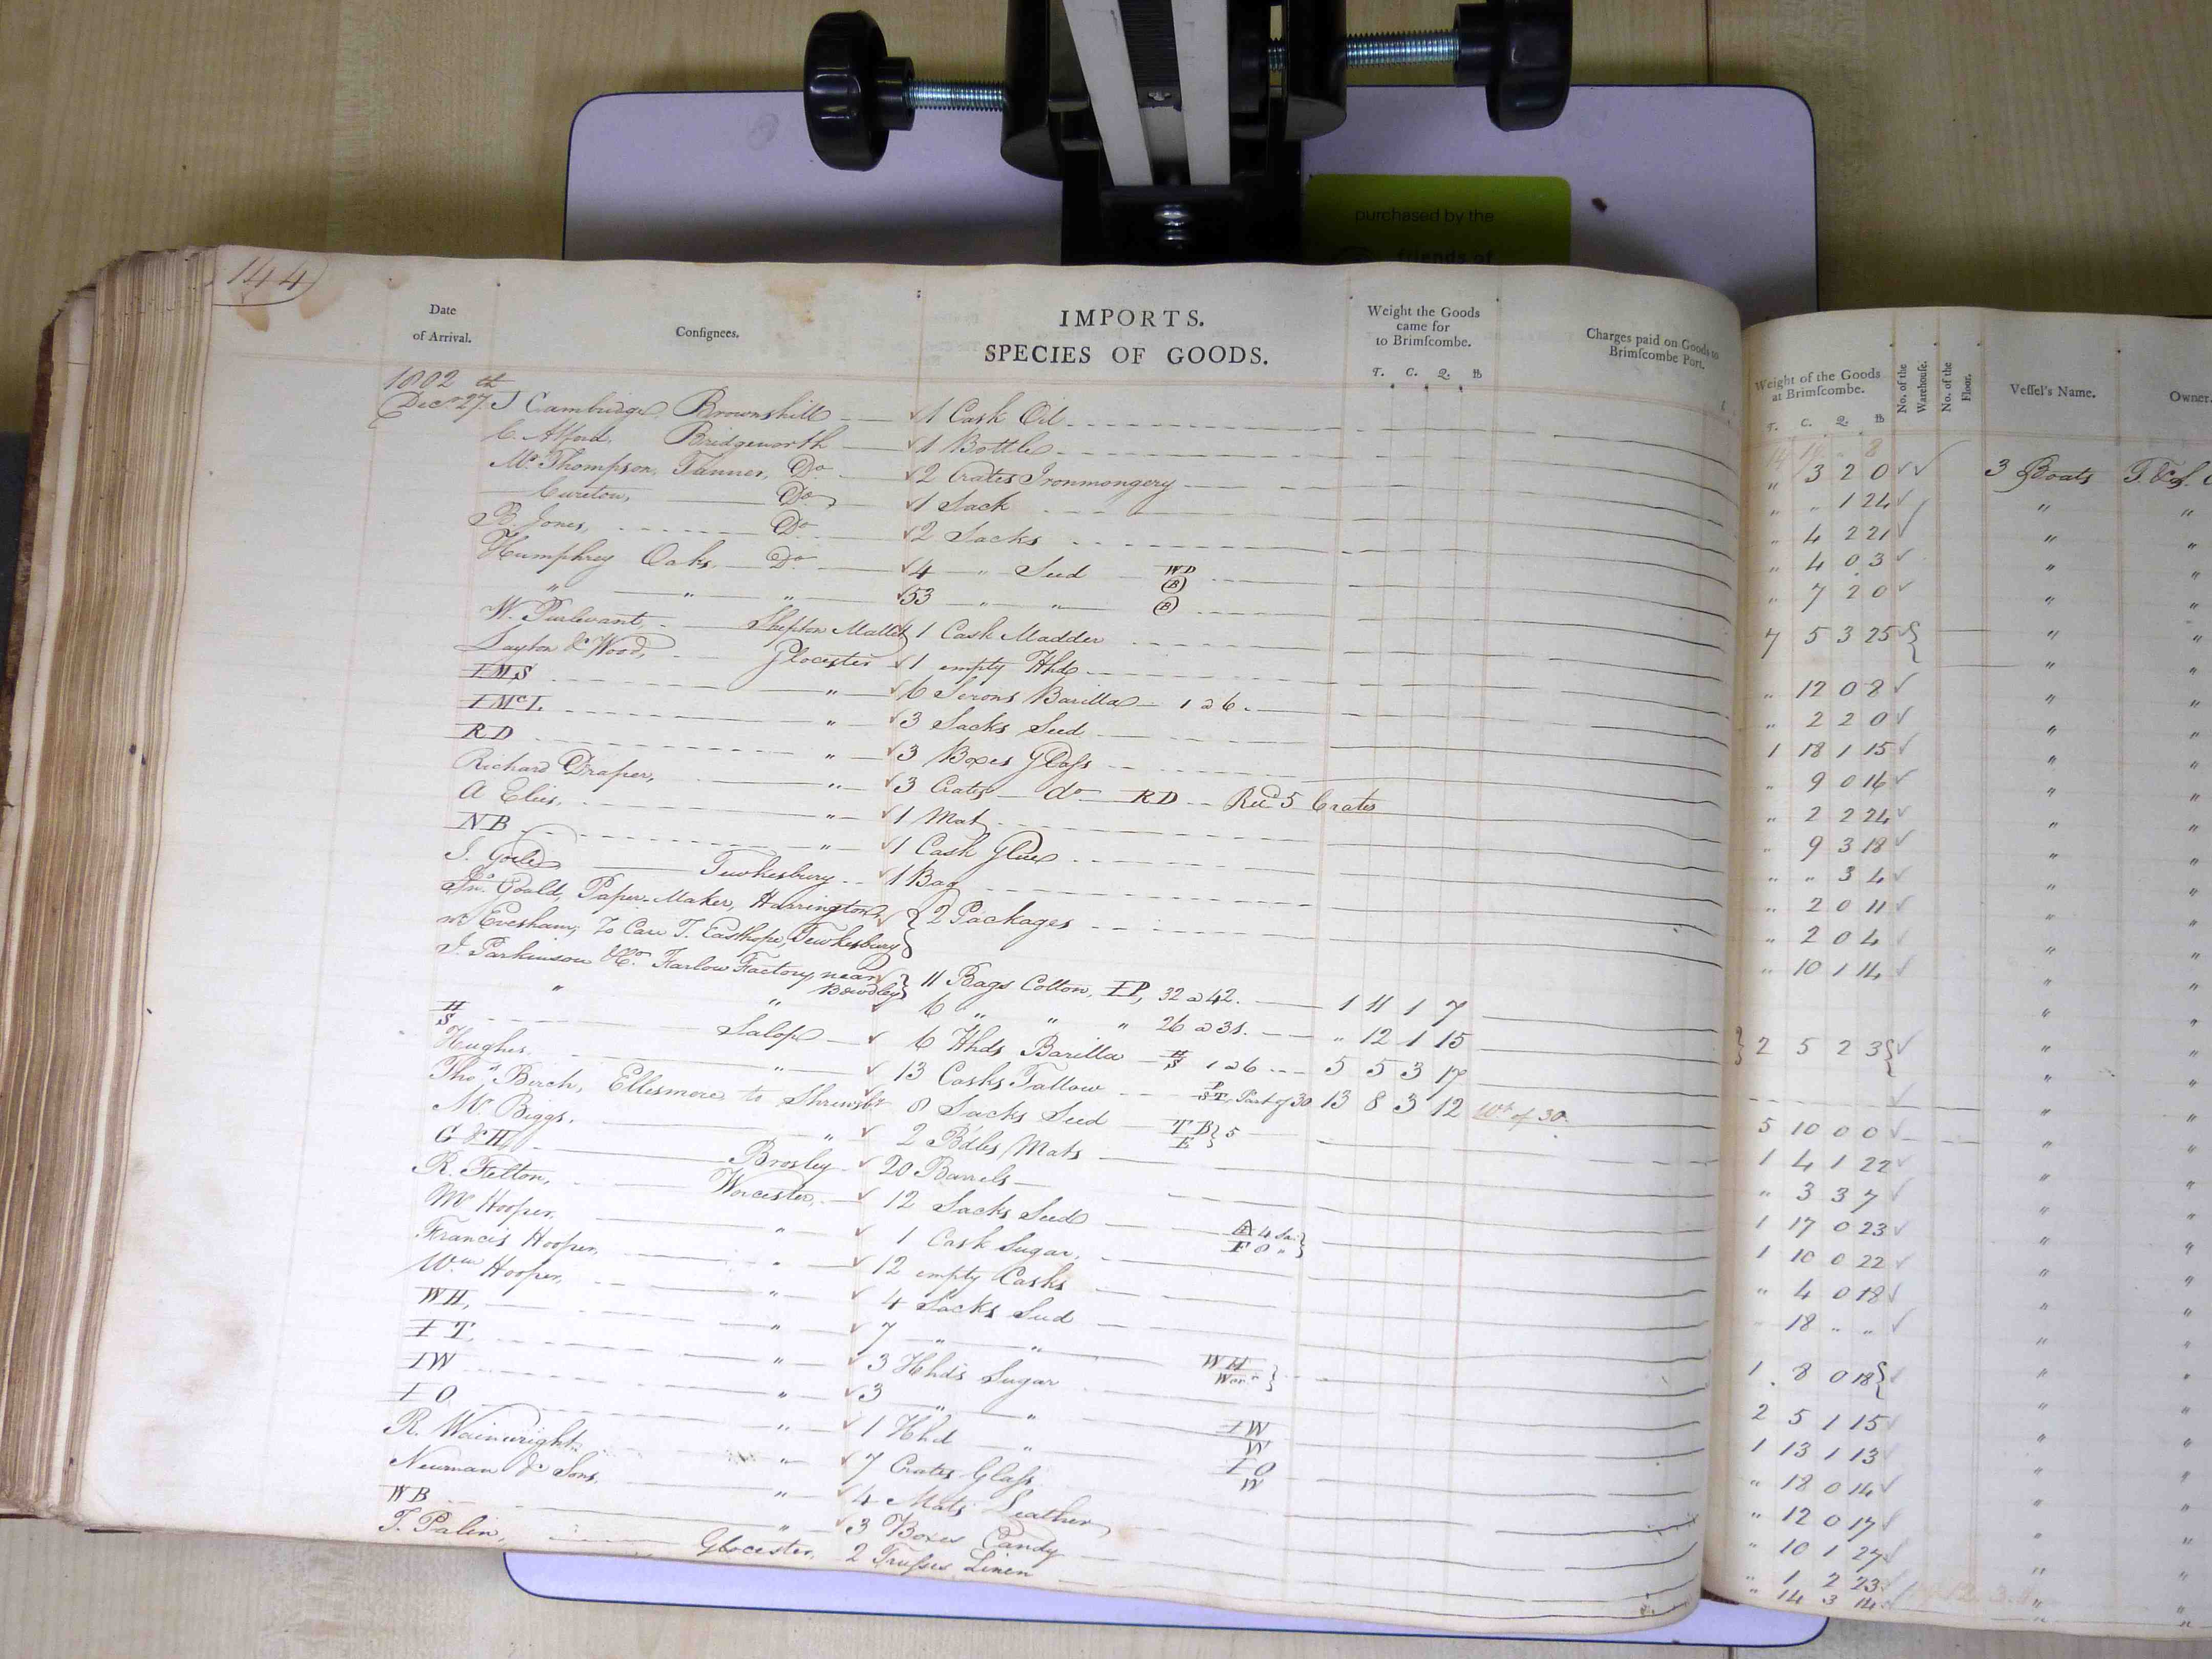 purchased by the
friends of
144
Date of Arrival.
Consignees.
IMPORTS.
SPECIES OF GOODS.
Weight the Goods came for to Brimscombe.
T. C. Q. lb
Charges paid on Goods to Brimscombe Port.
Weight of the Goods at Brimscombe.
T. C. Q. lb
No. of the Warehouse.
No. of the Floor.
Vessel's Name.
Owner
1802
Decr 27th J Cambridge, Brownshill 1 Cask Oil " 3 2 0 3 Boats
C. Alford, Bridgeworth 1 Bottle " " 1 24 " "
Mr Thompson, Tanner, Do 2 Crates Ironmongery " 4 2 21 " "
Cureton, Do 1 Sack " 4 0 3 " "
B. Jones, Do 2 Sacks " 7 2 0 " "
Humphrey Oaks, Do 4 " Seed WD (B) 7 5 3 25 " "
" " " 53 " " (B) " "
W. Purlevant, Shepton Mallet 1 Cask Madder " 12 0 8 " "
Layton & Wood, Glocester 1 empty Hhd " 2 2 0 " "
IMS " 6 Serons Barilla 1 a 6. 1 18 1 15 " "
IMcL " 3 Sacks Seed " 9 0 16 " "
RD " 3 Boxes Glass " 2 2 24 " "
Richard Draper, " 3 Crates do RD Recd 5 Crates " 9 3 18 " "
A Elies, " 1 Mat " " 3 4 " "
NB " 1 Cask Glue " 2 0 11 " "
J. Tewkesbury 1 Bag " 2 0 4 " "
Jno. Gould, Paper-Maker, Harrington, 2 Packages " 10 1 14 " "
nr Evesham, To Care T. Easthope, Tewkesbury
J. Parkinson & Co. Farlow Factory, near Bewdley 11 Bags Cotton, IP, 32 a 42. 1 11 1 7 2 5 2 3 " "
" " 6 " " " 26 a 31. " 12 1 15
H S Salop 6 Hhds Barilla H S 1 a 6 5 5 3 17 5 10 0 0
Hughes " 13 Casks Tallow Part of 30 13 8 3 12 Wt of 30.
Thos Birch, Ellesmere, to Shrewsby 8 Sacks Seed TB E 5 1 4 1 22 " "
Mr Biggs, " 2 Bdles Mats " 3 3 7 " "
G & H Brosley 20 Barrels 1 17 0 23 " "
R. Felton, Worcester, 12 Sacks Seed 1 10 0 22 " "
Mr Hooper, " 1 Cask Sugar, " 4 0 18 " "
Francis Hooper, " 12 empty Casks 18 " " " "
Wm Hooper, " 4 Sacks Seed 1 8 0 18 " "
WH, " 7 " " WH Wor.
IT, " 3 Hhds Sugar 2 5 1 15 " "
IW " 3 " " IW W 1 13 1 13 " "
IO " 1 Hhd " IO W " 18 0 14 " "
R. Wainwright " 7 Crates Glass " 12 0 17 " "
Newman & Sons, " 4 Mats Leather " 10 1 27 " "
WB " 3 Boxes Candy " 1 2 23 " "
T. Palin, Glocester, 2 Trusses Linen " 14 3 14 " "